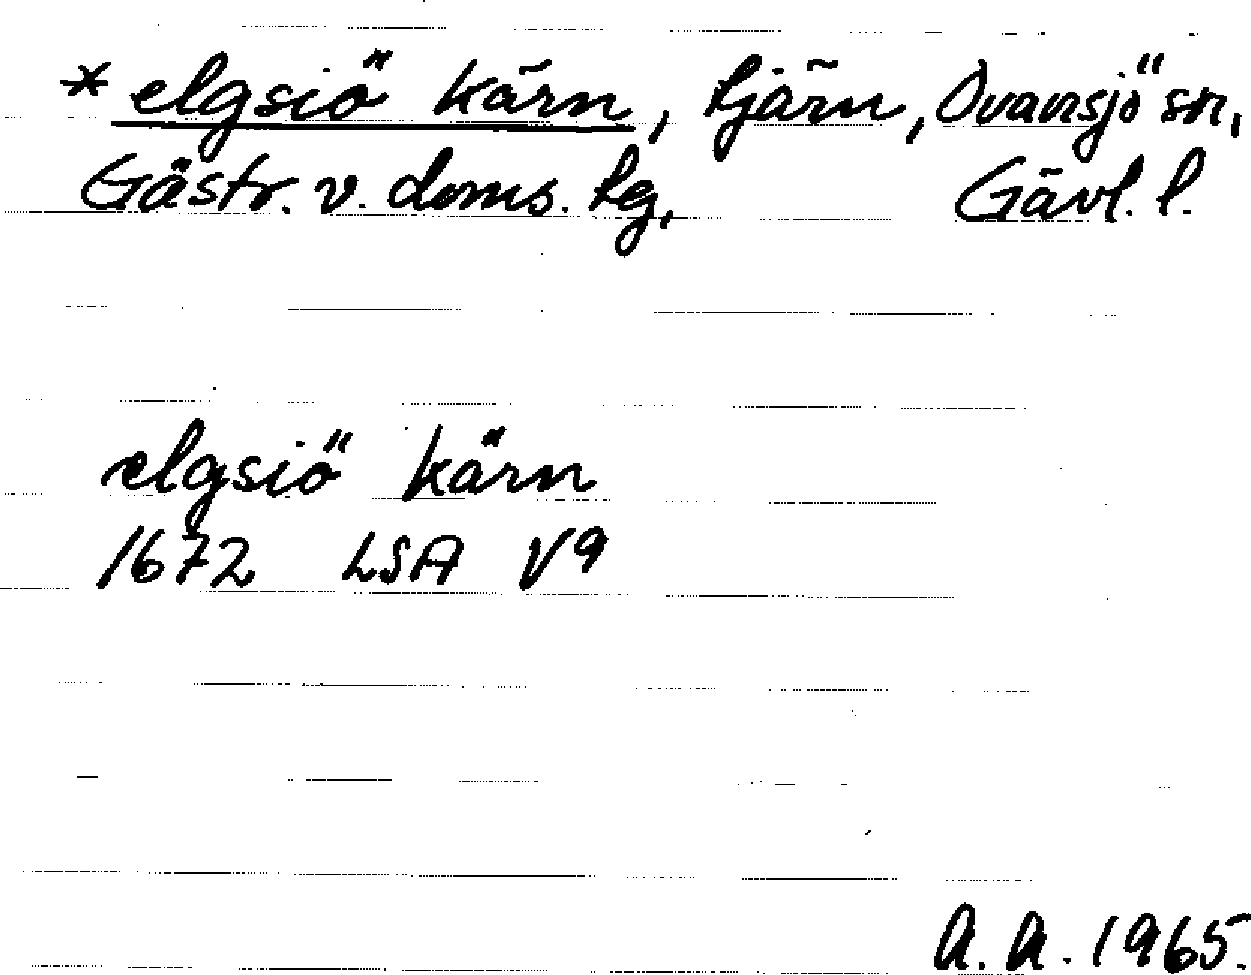 * elgsiö kärn, tjärn, Ovansjö sn,
Gästr. v. doms. tg, Gävl. l.
elgsiö kärn
1672 LSA V9
A.A. 1965.